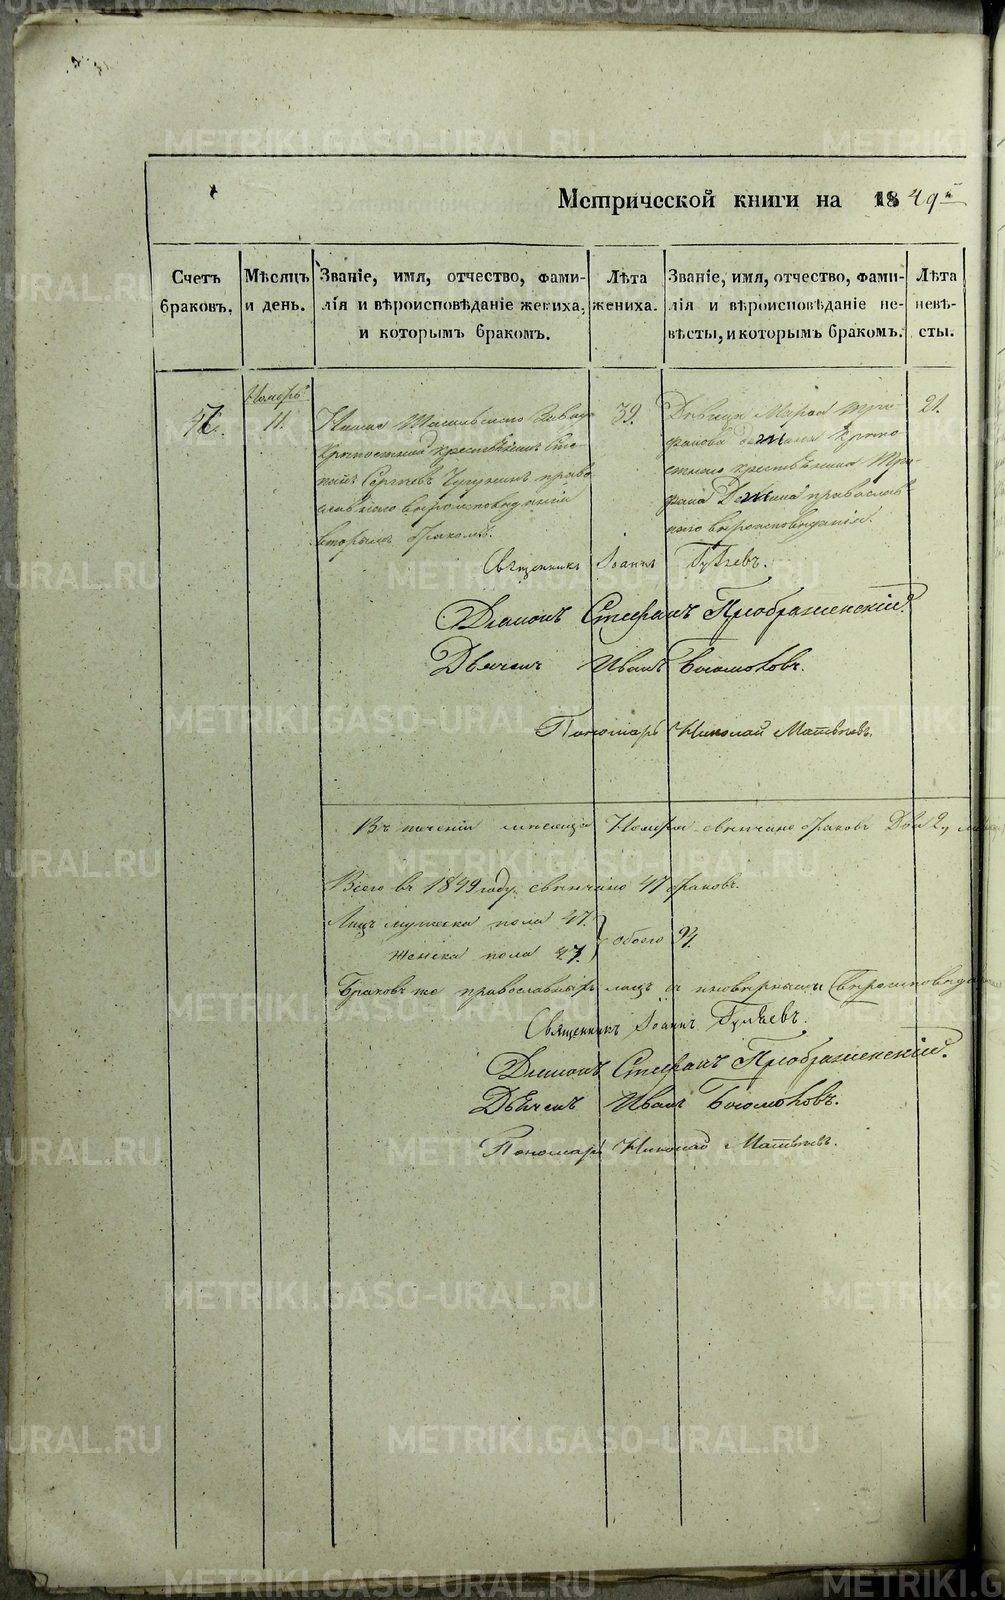 Метрической книги на 1849й
Счетъ браковъ.
Мѣсяцъ и день.
Званіе, имя, отчество, фами-
лія и вѣроисповѣданіе жениха,
и которымъ бракомъ.
Лѣта жениха.
Званіе, имя, отчество, фами-
лія и вѣроисповѣданіе не-
вѣсты, и которымъ бракомъ.
Лѣта невѣ-
сты.
Ноябрь
47.
11.
Завода
крестьянинъ Сте-
Сергѣевъ право
славнаго вѣроисповѣданія
вторымъ бракомъ.
39.
Дѣвица Марѳа Три-
фанова Крѣпо
стнаго крестьянина Три
фана православ-
наго вѣроисповѣданія.
21.
Священникъ Іоаннъ
Діаконъ Стефанъ Преображенскій.
Дьячекъ Иванъ Богомоловъ.
Пономарь Николай Матвѣевъ.
Въ теченіи мѣсяца Ноября свѣнчано браковъ Два 2,
Всего въ 1849 году свѣнчано 47 браковъ.
Лицъ мужеска пола 47.
Женска пола 47.
обоего 94.
Браковъ же православныхъ лицъ съ иновѣрными
Священникъ Іоаннъ
Діаконъ Стефанъ Преображенскій.
Дьячекъ Иванъ Богомоловъ.
Пономарь Николай Матвѣевъ.
METRIKI.GASO-URAL.RU